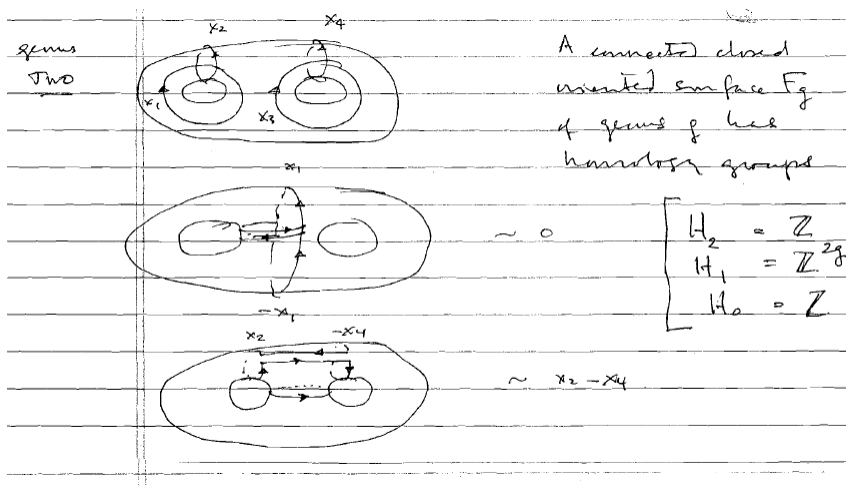 genus
Two
x₂
x₄
x₁
x₃
A connected closed
oriented surface Fg
of genus g has
homology groups
x₁
~ 0
-x₁
H₂ = ℤ
H₁ = ℤ²ᵍ
H₀ = ℤ
x₂
-x₄
~ x₂ - x₄